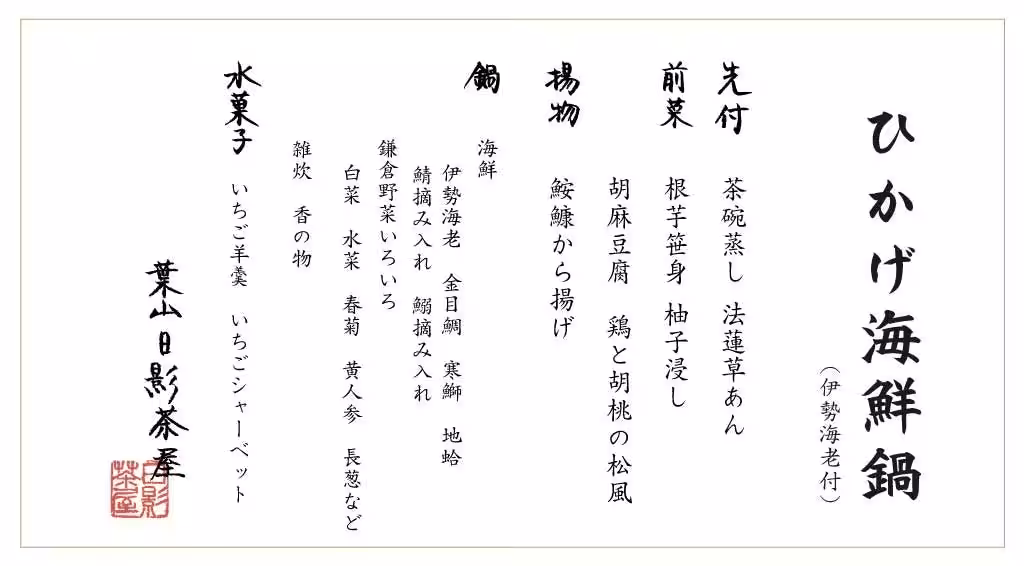 ひかげ海鮮鍋
（伊勢海老付）
先付　茶碗蒸し　法蓮草あん
前菜　根芋笹身　柚子浸し
胡麻豆腐　鶏と胡桃の松風
揚物　鮟鱇から揚げ
鍋　海鮮
伊勢海老　金目鯛　寒鰤　地蛤
鯖摘み入れ　鰯摘み入れ
鎌倉野菜いろいろ
白菜　水菜　春菊　黄人参　長葱など
雑炊　香の物
水菓子　いちご羊羹　いちごシャーベット
葉山日影茶屋
日影
茶屋